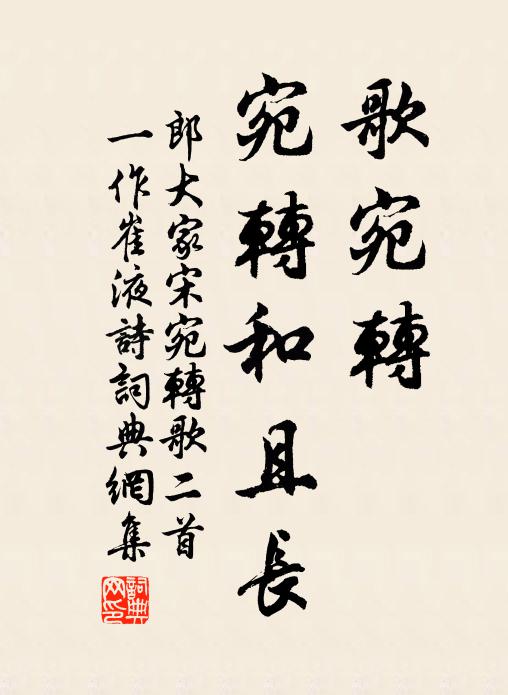 歌宛轉
宛轉和且長
郎大家宋宛轉歌二首
一作崔液詩詞典網集
詞典
网印